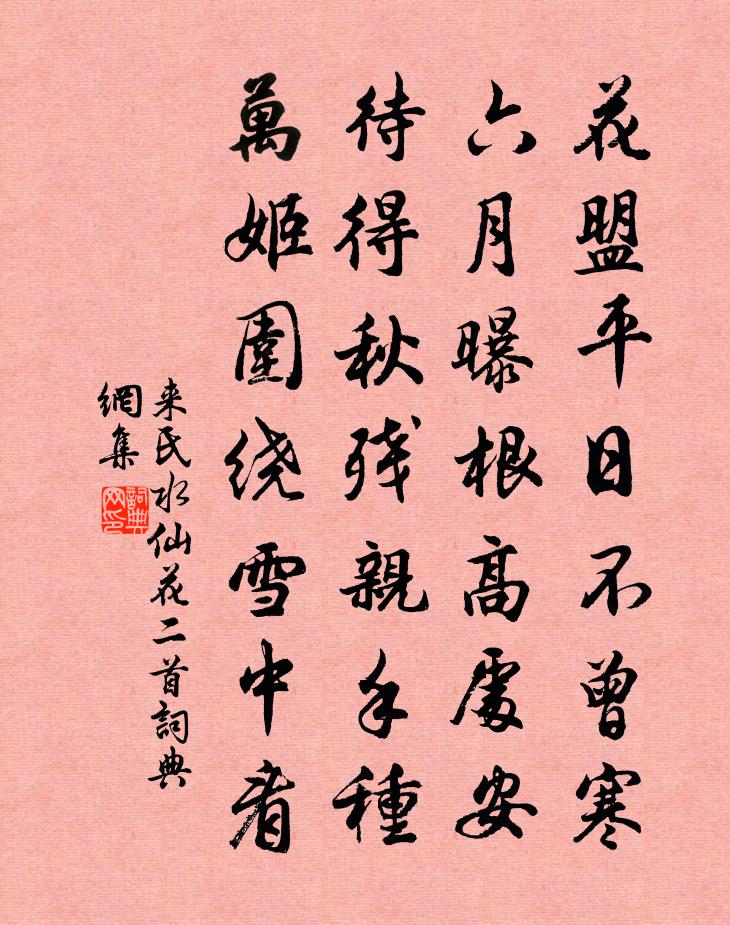 花盟平日不曾寒
六月曝根高處安
待得秋残親手種
萬姬圍绕雪中看
来氏水仙花二首詞典
網集
詞典网印